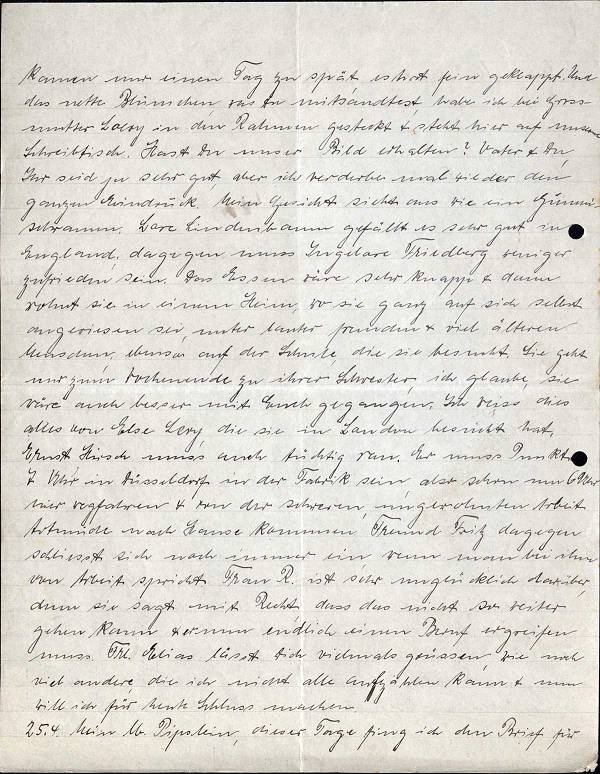 kamen nur einen Tag zu spät es hat fein geklappt. Und
das nette Blümchen, was Du mitsandtest habe ich bei Gross-
mutter Loewy in den Rahmen gesteckt & steht hier auf unserem
Schreibtisch. Hast Du unser Bild erhalten? Vater & Du,
Ihr seid ja sehr gut, aber ich verderbe mal wieder den
ganzen Eindruck. Mein Gesicht sieht aus wie ein Gummi-
schwamm. Lore Lindenbaum gefällt es sehr gut in
England, dagegen muss Ingelore Friedberg weniger
zufrieden sein. Das Essen wäre sehr knapp & dann
wohnt sie in einem Heim, wo sie ganz auf sich selbst
angewiesen sei, unter lauter fremden & viel älteren
Menschen, ebenso auf der Schule, die sie besucht. Sie geht
nur zum Wochenende zu ihrer Schwester, ich glaube, sie
wäre auch besser mit Euch gegangen. Ich weiss dies
alles von Else Levy, die sie in London besucht hat.
Ernst Hirsch muss auch tüchtig ran. Er muss Punkt
7 Uhr in Düsseldorf in der Fabrik sein also schon um 6 Uhr
hier wegfahren & von der schweren, ungewohnten Arbeit
totmüde nach Hause kommen. Freund Fritz dagegen
schliesst sich noch immer ein wenn man bei ihm
von Arbeit spricht. Frau R. ist sehr unglücklich darüber,
denn sie sagt mit Recht, dass das nicht so weiter
gehen kann & er nun endlich einen Beruf ergreifen
muss. Frl. Elias lässt Dich vielmals grüssen, wie noch
viel andere, die ich nicht alle aufzählen kann & nun
will ich für heute Schluss machen.
25.4. Mein lb. Pipslein, dieser Tage fing ich den Brief für